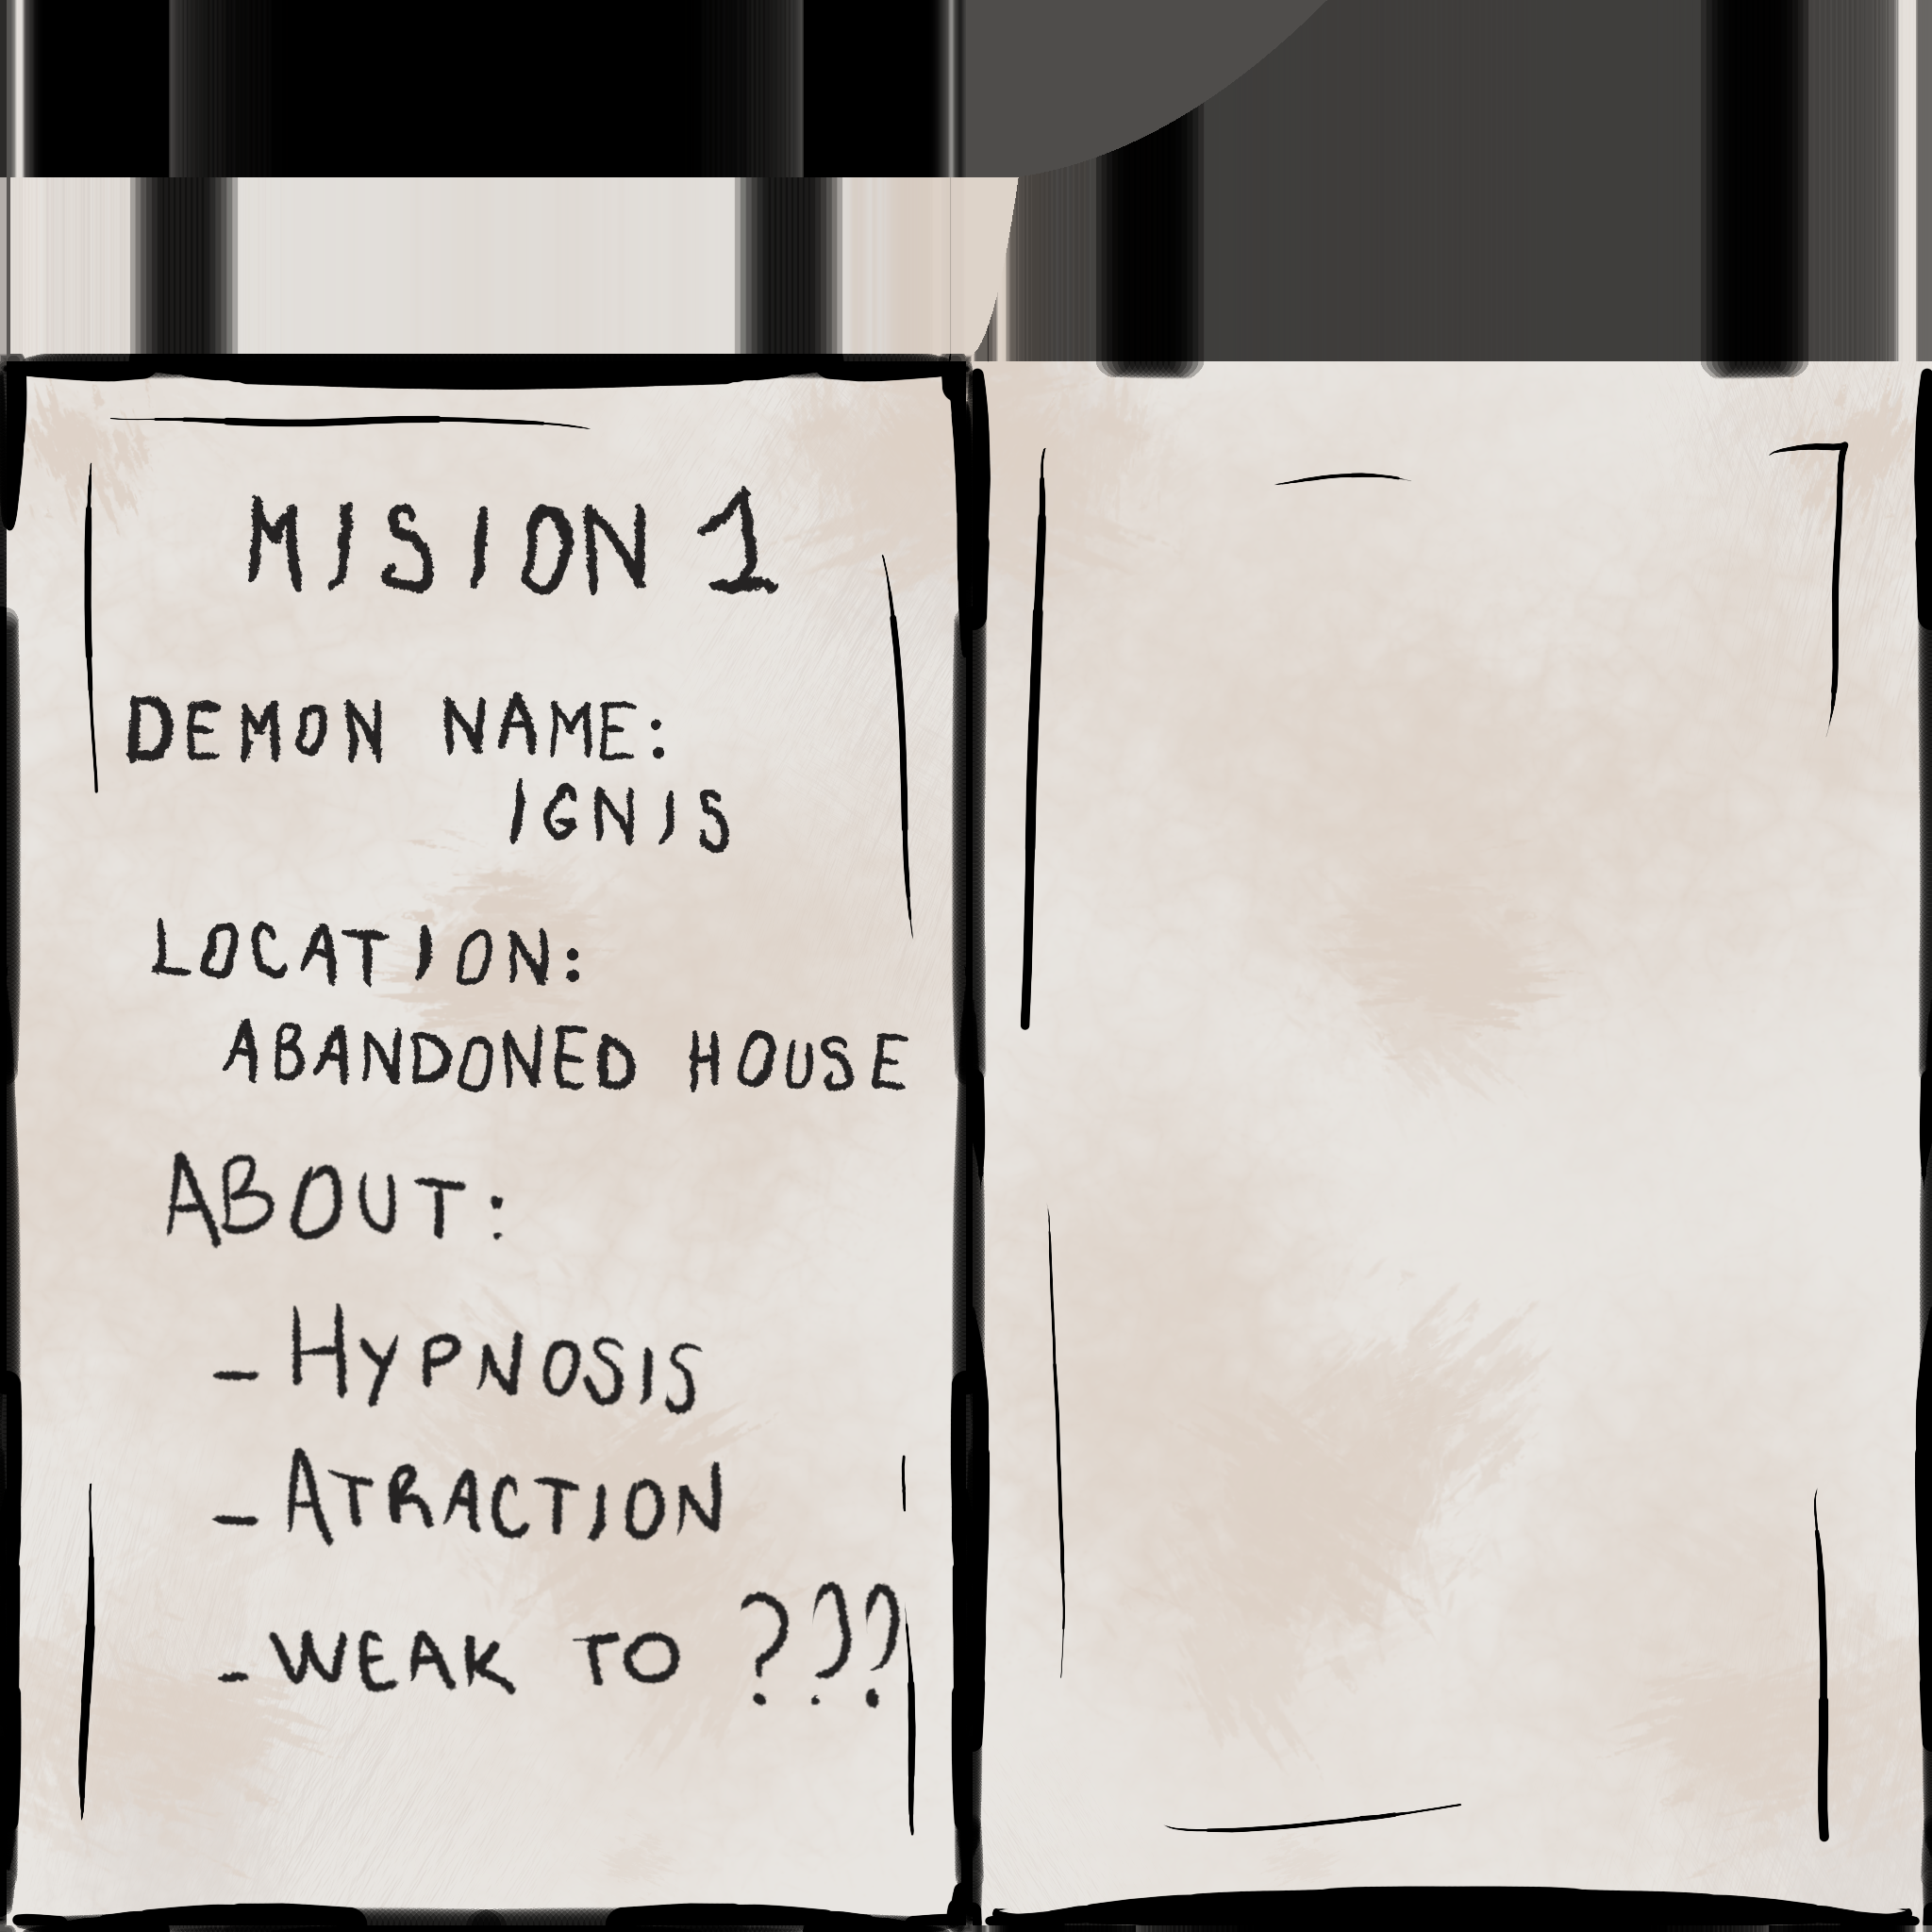 MISION 1
DEMON NAME:
IGNIS
LOCATION:
ABANDONED HOUSE
ABOUT:
- HYPNOSIS
- ATRACTION
- WEAK TO ???